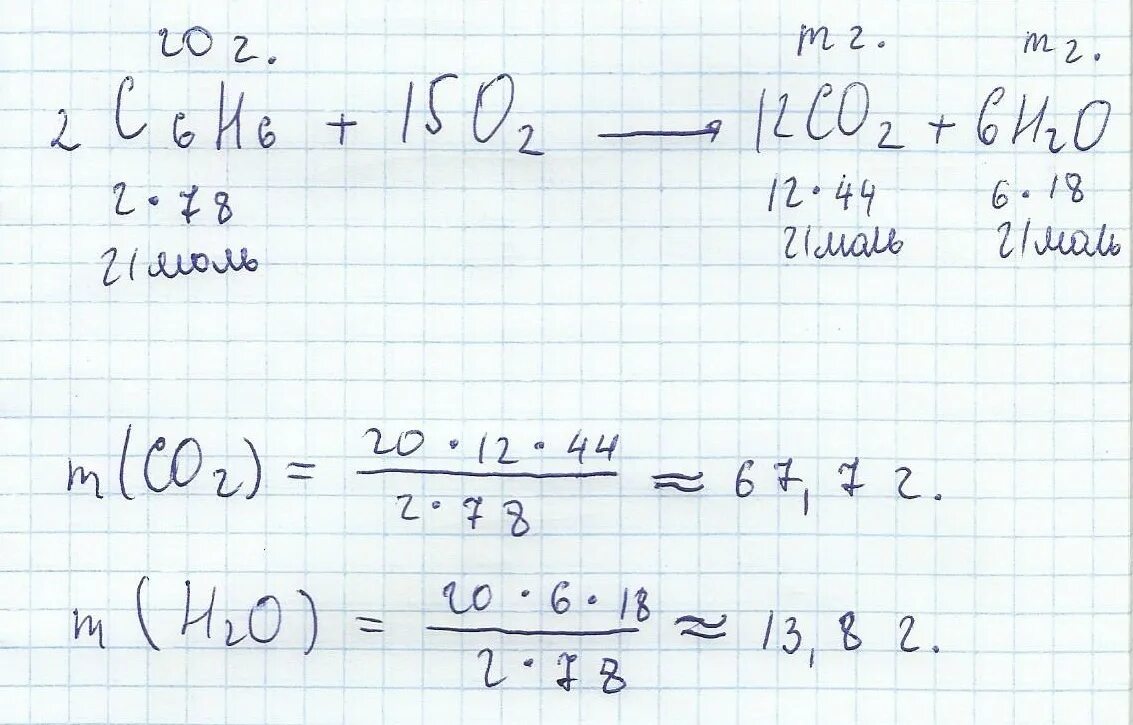 20 г. m г. m г.
2 C₆H₆ + 15O₂ → 12CO₂ + 6H₂O
2·78 12·44 6·18
г/моль г/моль г/моль
m(CO₂) = 20·12·44 / 2·78 ≈ 67,7 г.
m(H₂O) = 20·6·18 / 2·78 ≈ 13,8 г.